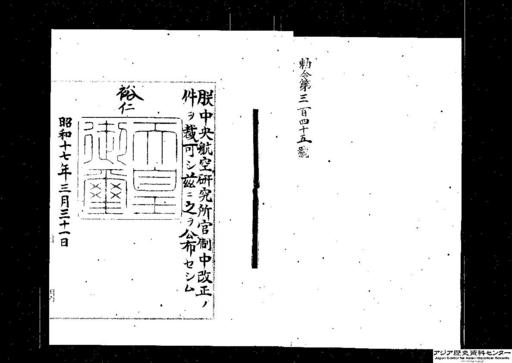 勅令第三百四十五號
朕中央航空研究所官制中改正ノ
件ヲ裁可シ茲ニ之ヲ公布セシム
裕仁
天皇
御璽
昭和十七年三月三十一日
アジア歴史資料センター
Japan Center for Asian Historical Records